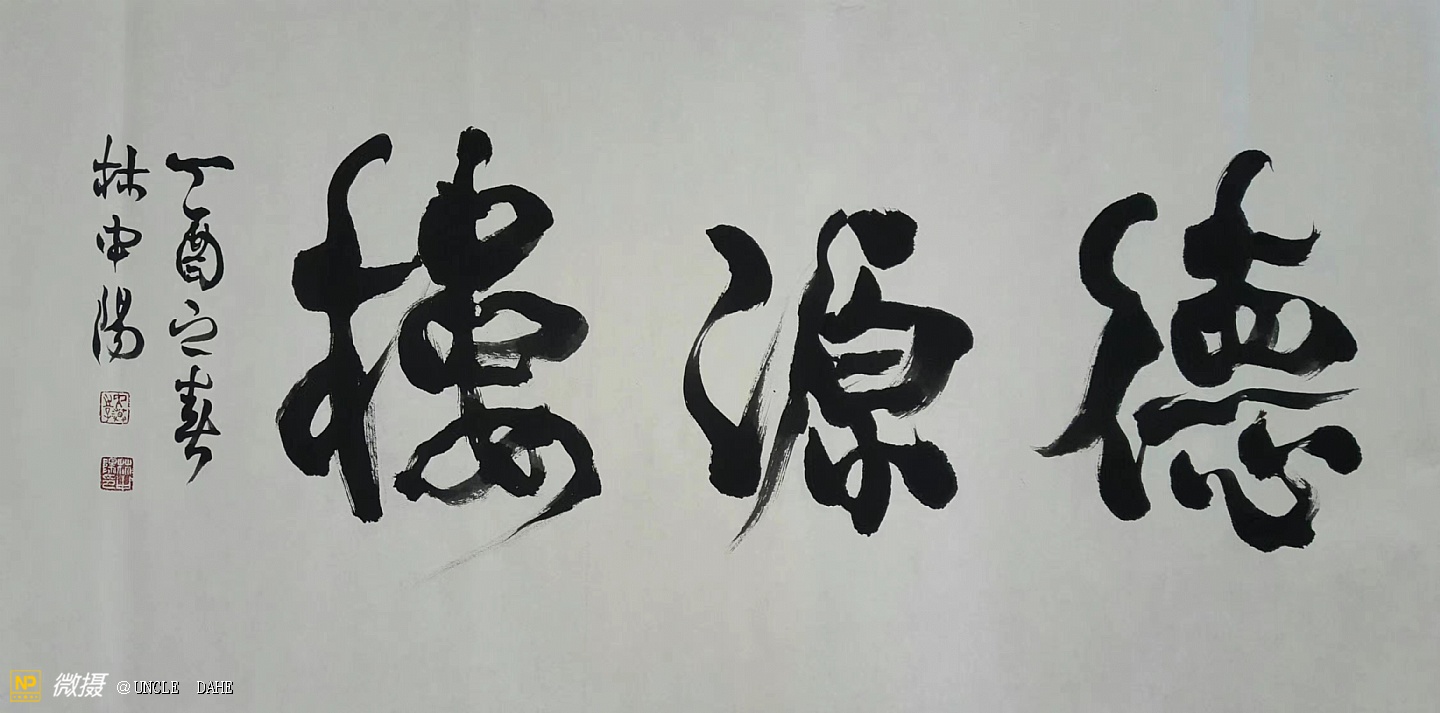 德源樓
丁酉之春
林申陽
NP 微摄 @UNCLE DAHE